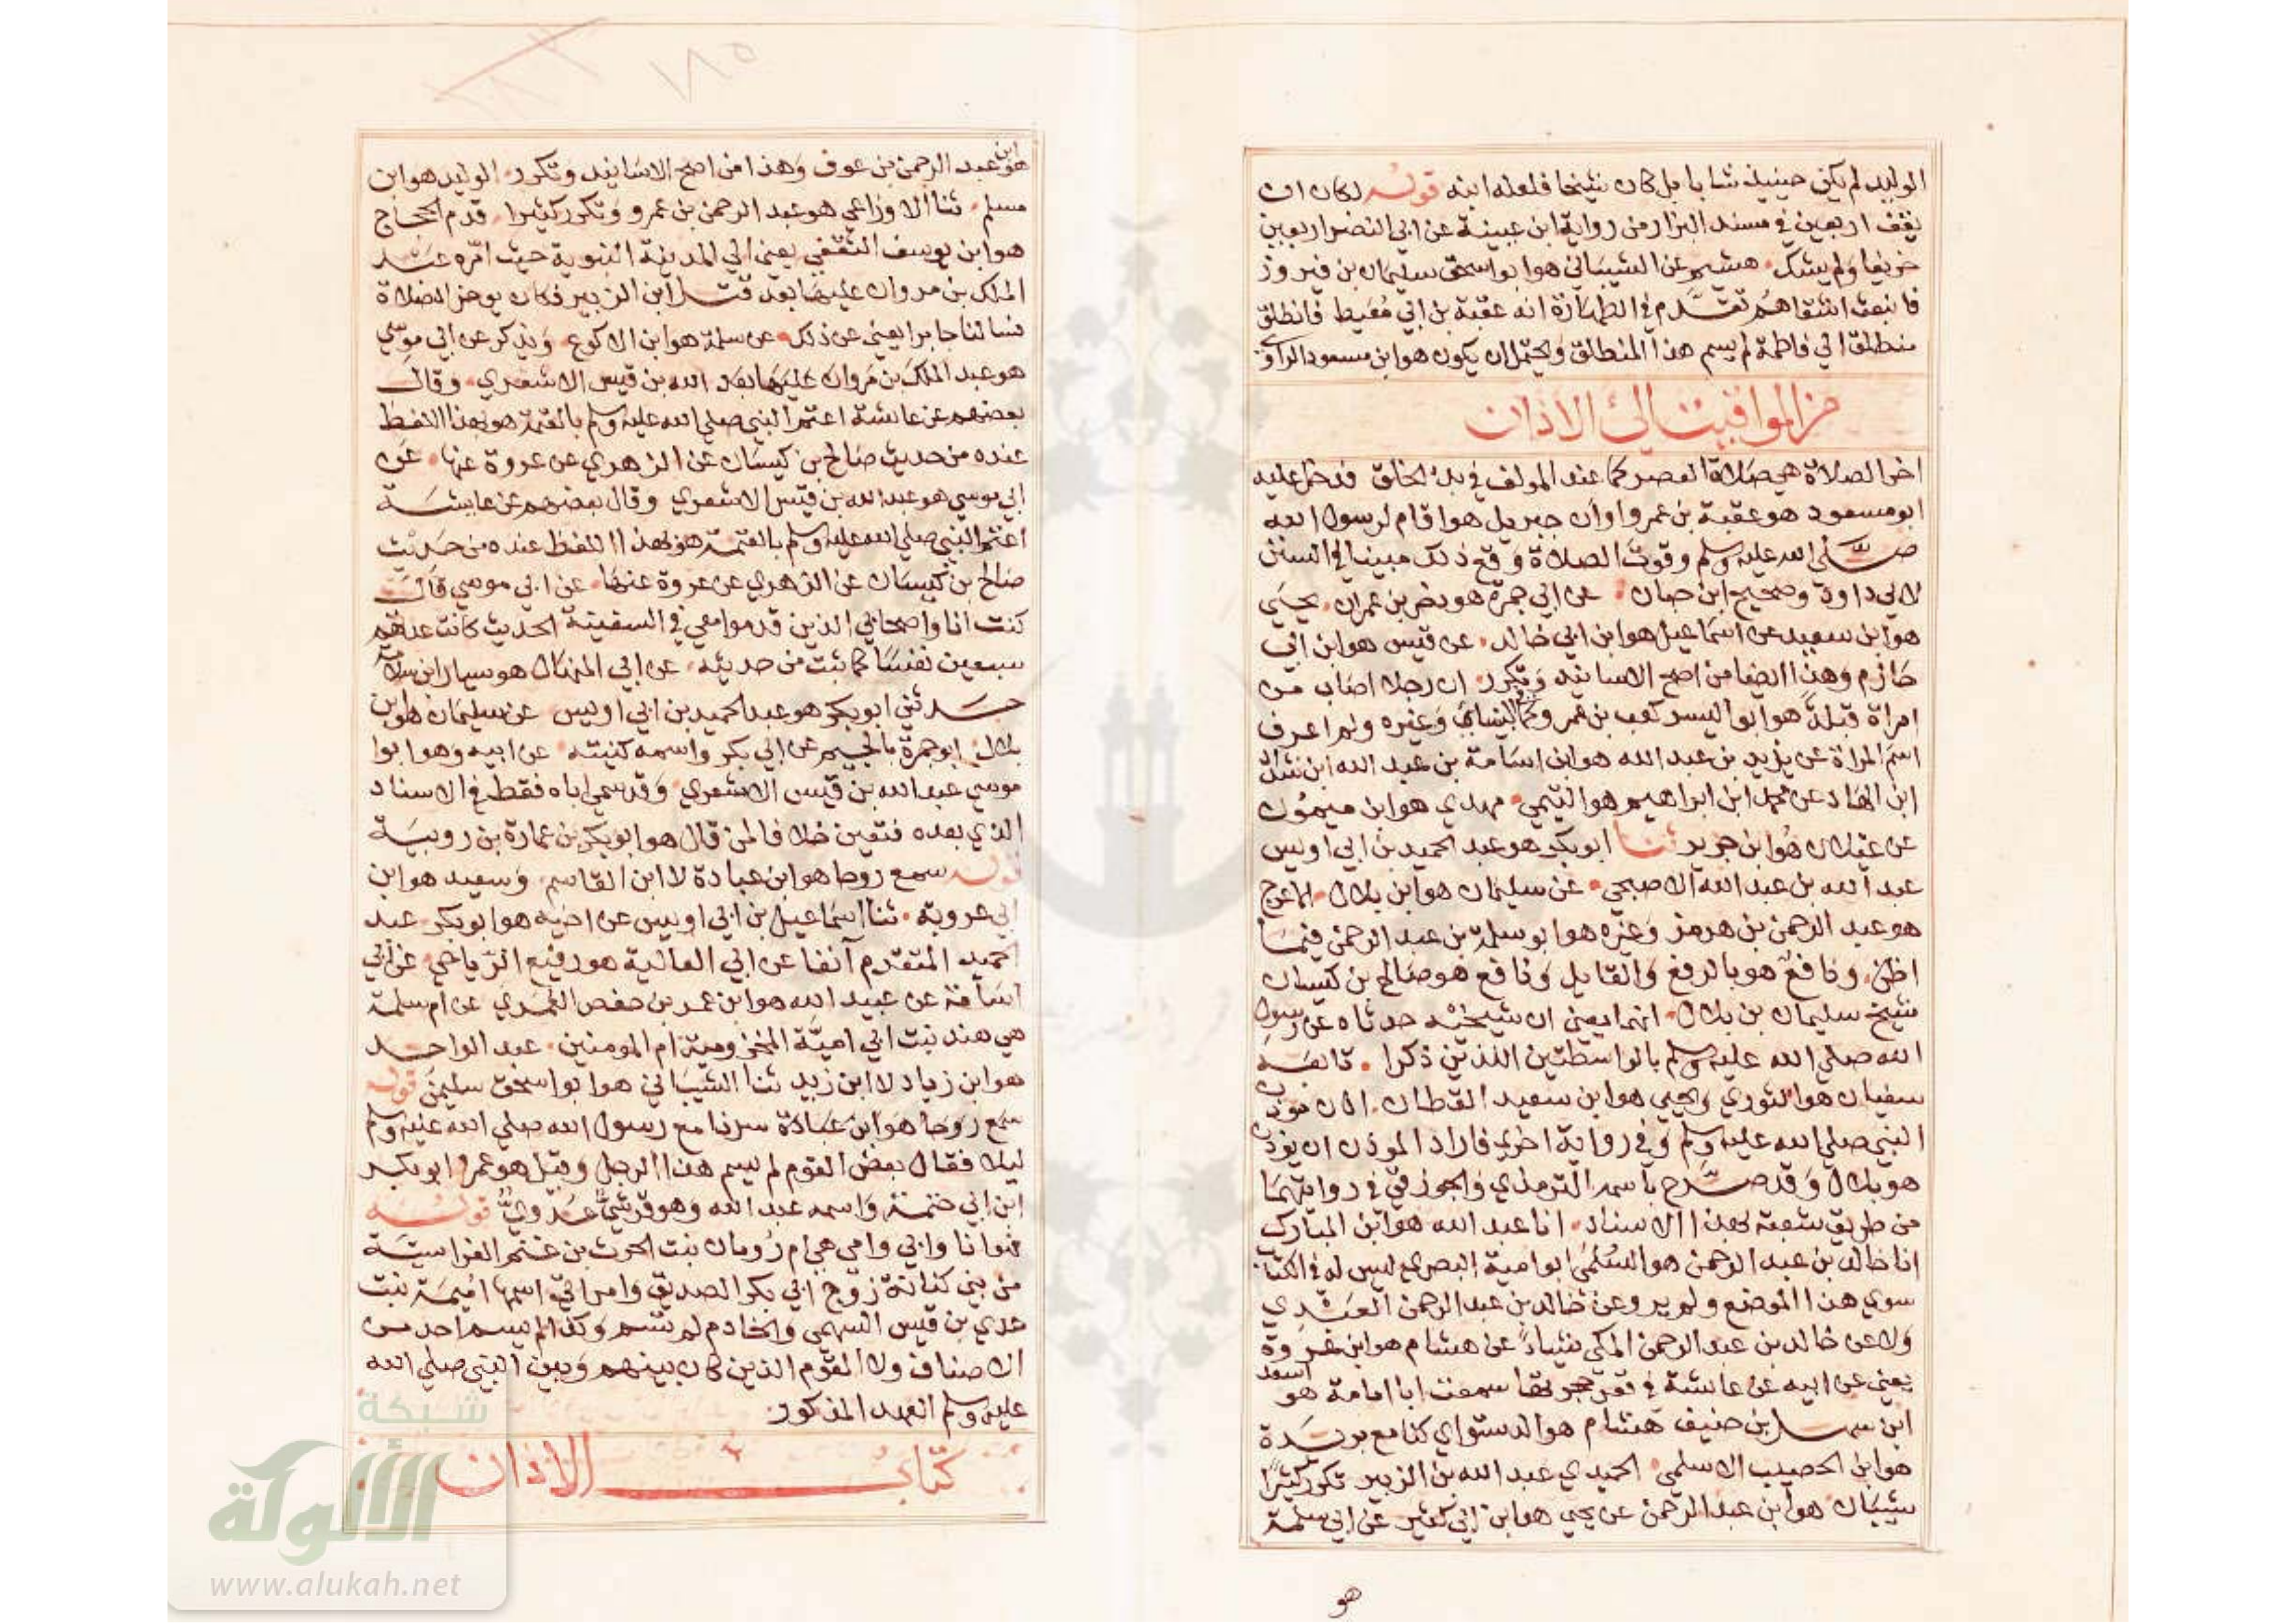 الوليد لم يكن حينيذ شابا بل كان شيخا فلعله ابنه قوله لكان ان
يقف اربعين في مسند البزار من رواية ابن عيينة عن ابي النضر اربعين
خريفا ولم يشك هشيم عن الشيباني هو ابو اسحق سليمان بن فيروز
فانبعث اشقاهم تقدم في الطهارة انه عقبة بن ابي معيط فانطلق
منطلق الي فاطمة لم يسم هذا المنطلق ويحتمل ان يكون هو ابن مسعود الراوي
من المواقيت الى الاذان
اخر الصلاة هي صلاة العصر كما عند المولف في بدء الخلق فدخل عليه
ابو مسعود هو عقبة بن عمرو اوان جبريل هو اقام لرسول الله
صلي الله عليه وسلم وقوت الصلاة وقع ذلك مبينا في السنن
لابي داود وصحيح ابن حبان عن ابي جمرة هو نصر بن عمران يحيي
هو ابن سعيد عن اسماعيل هو ابن ابي خالد عن قيس هو ابن ابي
حازم وهذا ايضا من اصح الاسانيد وتكرر ان رجلا اصاب من
امراة قبلة هو ابو اليسر كعب بن عمرو كما للنسائي وغيره ولم اعرف
اسم المراة عن يزيد بن عبد الله هو ابن اسامة بن عبد الله ابن شداد
ابن الهاد عن محمد ابن ابراهيم هو التيمي مهدي هو ابن ميمون
عن غيلان هو ابن جرير ثنا ابو بكر هو عبد الحميد بن ابي اويس
عبد الله بن عبد الله الاصبحي عن سليمان هو ابن بلال الاعرج
هو عبد الرحمن بن هرمز وغيره هو ابو سلمة بن عبد الرحمن فيما
اظن ونافع هو بالرفع والقايل ونافع هو صالح بن كيسان
شيخ سليمان بن بلال انهما يعني ان شيخيه حدثاه عن رسول
الله صلي الله عليه وسلم بالواسطتين اللذين ذكرا تابعه
سفيان هو الثوري ويحيي هو ابن سعيد القطان اذن موذن
النبي صلي الله عليه وسلم وفي رواية اخري فاراد الموذن ان يوذن
هو بلال وقد صرح باسمه الترمذي والجوزقي في روايتهما
من طريق شعبة بهذا الاسناد انا عبد الله هو ابن المبارك
انا خالد بن عبد الرحمن هو السلمي ابو امية البصري ليس له في الكتاب
سوي هذا الموضع ولم يرو عن خالد بن عبد الرحمن العبدي
ولا عن خالد بن عبد الرحمن المكي شيئا عن هشام هو ابن عروة
يعني عن ابيه عن عايشة في قعر حجرتها سمعت ابا امامة هو اسعد
ابن سهل بن حنيف هشام هو الدستواي كنا مع بريدة
هو ابن الحصيب الاسلمي الحميدي عبد الله بن الزبير تكرر كثيرا
شيبان هو ابن عبد الرحمن عن يحيي هو ابن ابي كثير عن ابي سلمة
هو
هو ابن عبد الرحمن بن عوف وهذا من اصح الاسانيد وتكرر الوليد هو ابن
مسلم ثنا الاوزاعي هو عبد الرحمن بن عمرو وتكرر كثيرا قدم الحجاج
هو ابن يوسف الثقفي يعني الي المدينة النبوية حيث امره عبد
الملك بن مروان عليها بعد قتل ابن الزبير فكان يوخر الصلاة
فسالنا جابرا يعني عن ذلك عن سلمة هو ابن الاكوع ويذكر عن ابي موسي
هو عبد الملك بن مروان عليها بعد الله بن قيس الاشعري وقال
بعضهم عن عايشة اعتم النبي صلي الله عليه وسلم بالعتمة هو بهذا اللفظ
عنده من حديث صالح بن كيسان عن الزهري عن عروة عنها عن
ابي موسي هو عبد الله بن قيس الاشعري وقال بعضهم عن عايشة
اعتم النبي صلي الله عليه وسلم بالعتمة هو بهذا اللفظ عنده من حديث
صالح بن كيسان عن الزهري عن عروة عنها عن ابي موسي قال
كنت انا واصحابي الذين قدموا معي في السفينة الحديث كانت عدتهم
سبعين نفسا كما ثبت من حديثه عن ابي المنهال هو سيار ابن سلامة
حدثني ابو بكر هو عبد الحميد بن ابي اويس عن سليمان هو ابن
بلال ابو جمرة بالجيم عن ابي بكر واسمه كنيته عن ابيه وهو ابوا
موسي عبد الله بن قيس الاشعري وقد سمي اباه فقط في الاسناد
الذي بعده فتعين خلافا لمن قال هو ابو بكر بن عمارة بن رويبة
قوله سمع روحا هو ابن عبادة لا ابن القاسم وسعيد هو ابن
ابي عروبة ثنا اسماعيل بن ابي اويس عن اخيه هو ابو بكر عبد
الحميد المتقدم آنفا عن ابي العالية هو رفيع الرياحي عن ابي
اسامة عن عبيد الله هو ابن عمر بن حفص العمري عن ام سلمة
هي هند بنت ابي امية المخزومية ام المومنين عبد الواحد
هو ابن زياد لا ابن زيد ثنا الشيباني هو ابو اسحق سليمن قوله
سمع روحا هو ابن عبادة سرنا مع رسول الله صلي الله عليه وسلم
ليلا فقال بعض القوم لم يسم هذا الرجل وقيل هو عمر ابو بكر
ابن ابي حثمة واسمه عبد الله وهو قرشي عدوي قوله
فهو انا وابي وامي هي ام رومان بنت الحرث بن غنم الفراسية
من بني كنانة زوج ابي بكر الصديق وامراتي اسمها اميمة بنت
عدي بن قيس السهمي والخادم لم تسم وكذا لم يسم احد من
الاضياف ولا القوم الذين كان بينهم وبين النبي صلي الله
عليه وسلم العهد المذكور
كتاب الاذان
شبكة
الألوكة
www.alukah.net